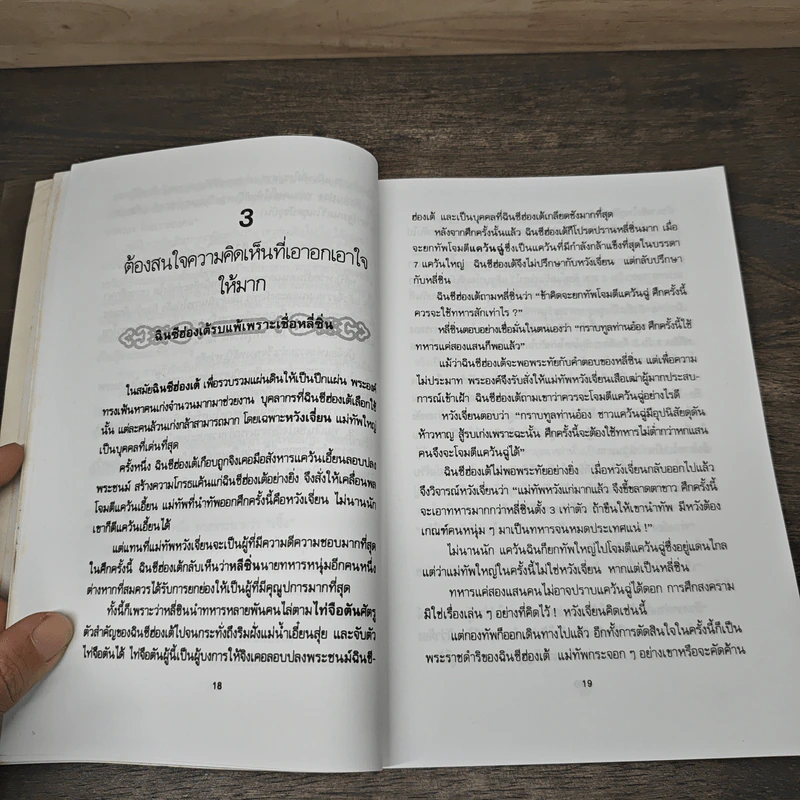 3
ต้องสนใจความคิดเห็นที่เอาอกเอาใจ
ให้มาก
ฉินซีฮ่องเต้รบแพ้เพราะเชื่อหลี่ซิ่น
ในสมัยฉินซีฮ่องเต้ เพื่อรวบรวมแผ่นดินให้เป็นปึกแผ่น พระองค์
ทรงเฟ้นหาคนเก่งจำนวนมากมาช่วยงาน บุคลากรที่ฉินซีฮ่องเต้เลือกใช้
นั้น แต่ละคนล้วนเก่งกล้าสามารถมาก โดยเฉพาะหวังเจี่ยน แม่ทัพใหญ่
เป็นบุคคลที่เด่นที่สุด
ครั้งหนึ่ง ฉินซีฮ่องเต้เกือบถูกจิงเคอมือสังหารแคว้นเอี้ยนลอบปลง
พระชนม์ สร้างความโกรธแค้นแก่ฉินซีฮ่องเต้อย่างยิ่ง จึงสั่งให้เคลื่อนพล
โจมตีแคว้นเอี้ยน แม่ทัพที่นำทัพออกศึกครั้งนี้คือหวังเจี่ยน ไม่นานนัก
เขาก็ตีแคว้นเอี้ยนได้
แต่แทนที่แม่ทัพหวังเจี่ยนจะเป็นผู้ที่มีความดีความชอบมากที่สุด
ในศึกครั้งนี้ ฉินซีฮ่องเต้กลับเห็นว่าหลี่ซิ่นนายทหารหนุ่มอีกคนหนึ่ง
ต่างหากที่สมควรได้รับการยกย่องให้เป็นผู้ที่มีคุณูปการมากที่สุด
ทั้งนี้ก็เพราะว่าหลี่ซิ่นนำทหารหลายพันคนไล่ตามไท่จือตันศัตรู
ตัวสำคัญของฉินซีฮ่องเต้ไปจนกระทั่งถึงริมฝั่งแม่น้ำเอี้ยนสุ่ย และจับตัว
ไท่จือตันได้ ไท่จือตันผู้นี้เป็นผู้บงการให้จิงเคอลอบปลงพระชนม์ฉินซี-
18
ฮ่องเต้ และเป็นบุคคลที่ฉินซีฮ่องเต้เกลียดชังมากที่สุด
หลังจากศึกครั้งนั้นแล้ว ฉินซีฮ่องเต้ก็โปรดปรานหลี่ซิ่นมาก เมื่อ
จะยกทัพโจมตีแคว้นฉู่ซึ่งเป็นแคว้นที่มีกำลังกล้าแข็งที่สุดในบรรดา
7 แคว้นใหญ่ ฉินซีฮ่องเต้จึงไม่ปรึกษากับหวังเจี่ยน แต่กลับปรึกษา
กับหลี่ซิ่น
ฉินซีฮ่องเต้ถามหลี่ซิ่นว่า “ข้าคิดจะยกทัพโจมตีแคว้นฉู่ ศึกครั้งนี้
ควรจะใช้ทหารสักเท่าไร ?”
หลี่ซิ่นตอบอย่างเชื่อมั่นในตนเองว่า “กราบทูลท่านอ๋อง ศึกครั้งนี้ใช้
ทหารแค่สองแสนก็พอแล้ว”
แม้ว่าฉินซีฮ่องเต้จะพอพระทัยกับคำตอบของหลี่ซิ่น แต่เพื่อความ
ไม่ประมาท พระองค์จึงรับสั่งให้แม่ทัพหวังเจี่ยนเสือเฒ่าผู้มากประสบ-
การณ์เข้าเฝ้า ฉินซีฮ่องเต้ถามเขาว่าควรจะโจมตีแคว้นฉู่อย่างไรดี
หวังเจี่ยนตอบว่า “กราบทูลท่านอ๋อง ชาวแคว้นฉู่มีอุปนิสัยดุดัน
ห้าวหาญ สู้รบเก่งเพราะฉะนั้น ศึกครั้งนี้จะต้องใช้ทหารไม่ต่ำกว่าหกแสน
คนจึงจะโจมตีแคว้นฉู่ได้”
ฉินซีฮ่องเต้ไม่พอพระทัยอย่างยิ่ง เมื่อหวังเจี่ยนกลับออกไปแล้ว
จึงวิจารณ์หวังเจี่ยนว่า “แม่ทัพหวังแก่มากแล้ว จึงขี้ขลาดตาขาว ศึกครั้งนี้
จะเอาทหารมากกว่าหลี่ซิ่นตั้ง 3 เท่าตัว ถ้าขืนให้เขานำทัพ มีหวังต้อง
เกณฑ์คนหนุ่ม ๆ มาเป็นทหารจนหมดประเทศแน่ !”
ไม่นานนัก แคว้นฉินก็ยกทัพใหญ่ไปโจมตีแคว้นฉู่ซึ่งอยู่แดนไกล
แต่ว่าแม่ทัพใหญ่ในครั้งนี้ไม่ใช่หวังเจี่ยน หากแต่เป็นหลี่ซิ่น
ทหารแค่สองแสนคนไม่อาจปราบแคว้นฉู่ได้ดอก การศึกสงคราม
มิใช่เรื่องเล่น ๆ อย่างที่คิดไว้ ! หวังเจี่ยนคิดเช่นนี้
แต่กองทัพก็ออกเดินทางไปแล้ว อีกทั้งการตัดสินใจในครั้งนี้ก็เป็น
พระราชดำริของฉินซีฮ่องเต้ แม่ทัพกระจอก ๆ อย่างเขาหรือจะคัดค้าน
19